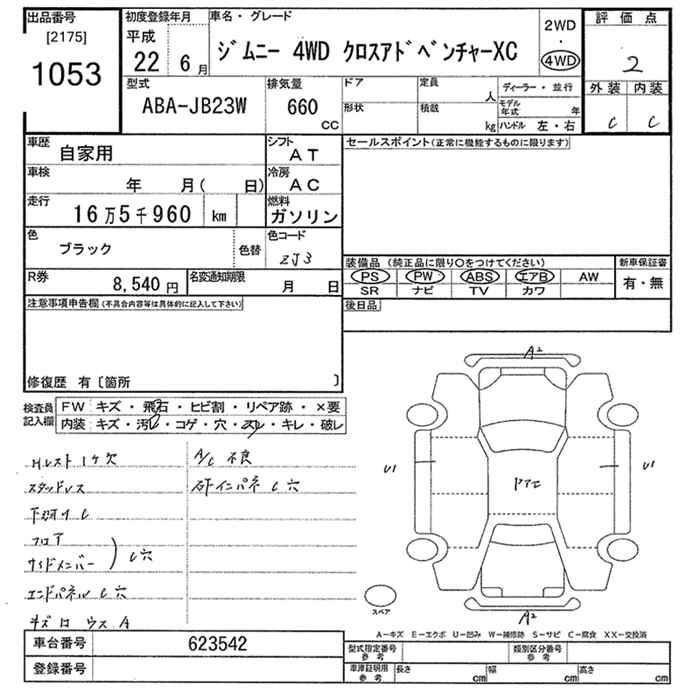 出品番号
[2175]
1053
初度登録年月
平成
22 6月
車名・グレード
ジムニー 4WD クロスアドベンチャーXC
2WD
・
4WD
評価点
2
外装 内装
C C
型式
ABA-JB23W
排気量
660
CC
ドア
形状
定員
人
積載
kg
ディーラー・並行
モデル年式 年
ハンドル 左・右
車歴
自家用
シフト
AT
車検
年 月( 日)
冷房
AC
走行
16万5千960 km
燃料
ガソリン
色
ブラック
色替
色コード
ZJ3
R券
8,540円
名変通知期限
月 日
セールスポイント(正常に機能するものに限ります)
装備品 (純正品に限り○をつけてください)
PS PW ABS エアB AW
SR ナビ TV カワ
新車保証書
有・無
後日品
注意事項申告欄(不具合内容等は具体的に記入して下さい)
修復歴 有〔箇所 〕
検査員記入欄
FW キズ・飛石・ヒビ割・リペア跡・×要
内装 キズ・汚レ・コゲ・穴・スレ・キレ・破レ
Hレスト1ケ欠
A/C 不良
スタッドレス
右Fインパネ C穴
下廻りC
フロア
サイドメンバー
C穴
エンドパネル C穴
キズ凹 ウス A
A2
U1
U1
ドア工
A2
スペア
A−キズ E−エクボ U−凹み W−補修跡 S−サビ C−腐食 XX−交換済
車台番号 623542
登録番号
型式指定番号
参考
類別区分番号
参考
車庫証明用
参考
長さ cm
幅 cm
高さ cm